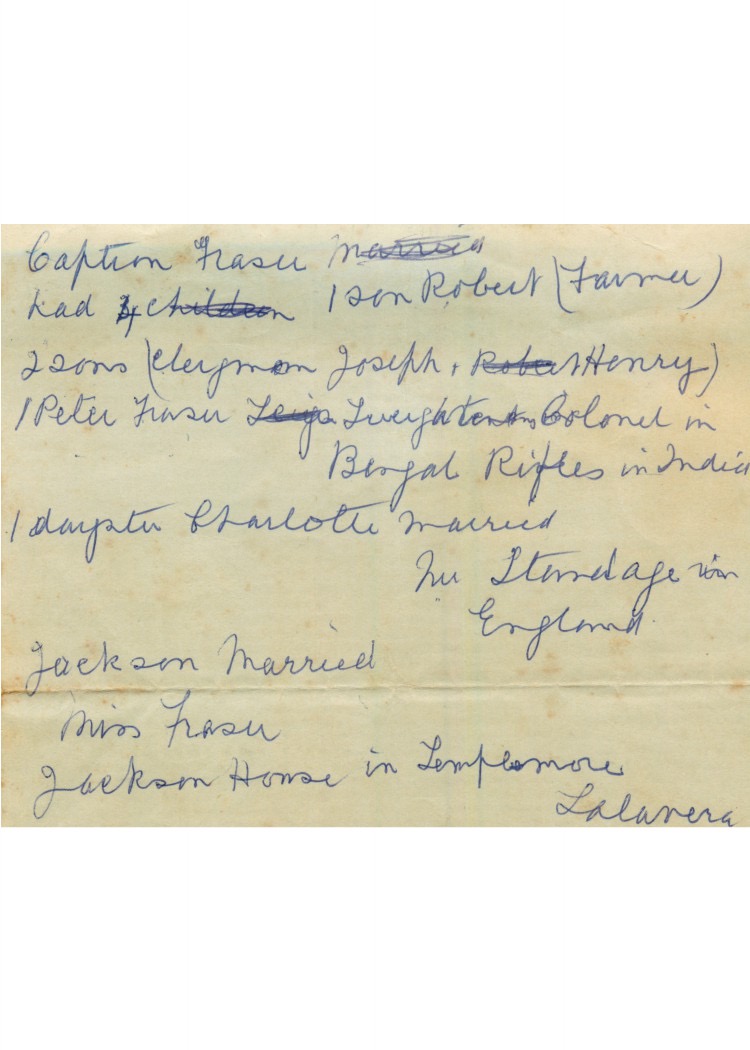 Caption Fraser Married
had 4 children 1 son Robert (Farmer)
2 sons (Clergmon Joseph + Robert Henry)
1 Peter Fraser Colonel in
Bengal Rifles in India
1 daugter Charlotte married
Mr in
England
Jackson Married
Miss Fraser
Jackson House in Templemore
Lalavera